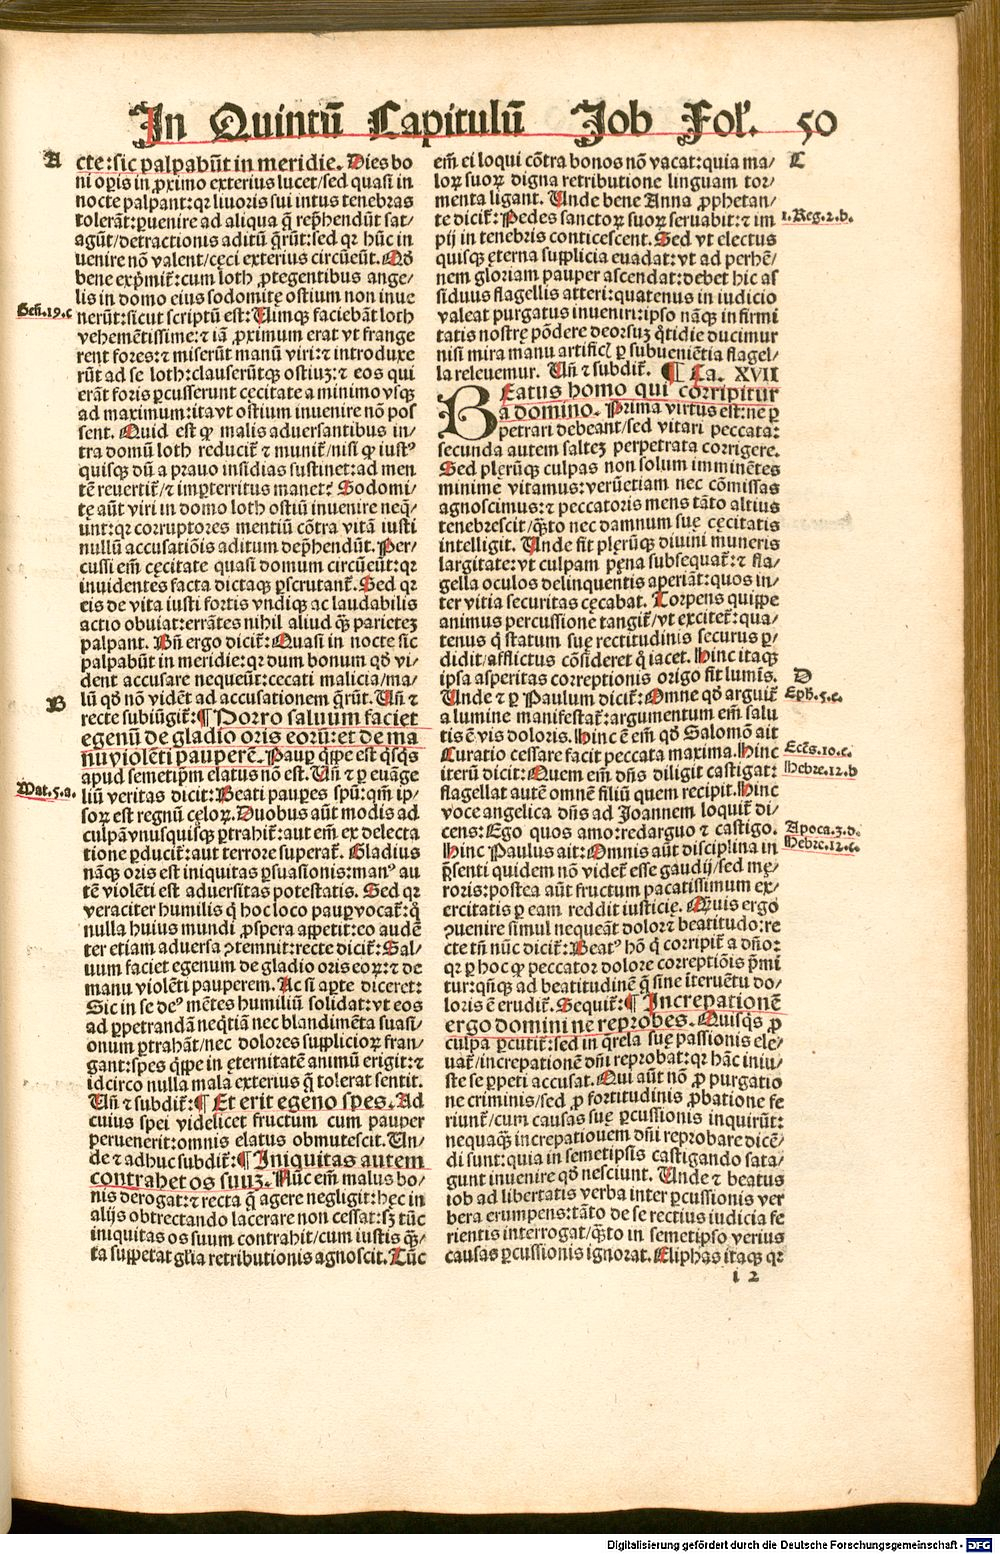 In Quintū Capitulū Job Fol'. 50
A
cte: sic palpabūt in meridie. Dies bo
ni oꝑis in ꝓximo exterius lucet/sed quasi in
nocte palpant: qꝛ liuoris sui intus tenebras
tolerāt: ꝑuenire ad aliqua q̄ rep̄hendūt sat/
agūt/detractionis aditū q̄rūt: sed qꝛ hūc in
uenire nō valent/cęci exterius circūeūt. Qđ
bene exp̄mit̄: cum loth ꝓtegentibus ange/
lis in domo eius sodomitę ostium non inue
Geñ.19.c
nerūt: sicut scriptū est: Uimqꝫ faciebāt loth
vehemētissime: ⁊ iā ꝓximum erat vt frange
rent fores: ⁊ miserūt manū viri: ⁊ introduxe
rūt ad se loth: clauserūtqꝫ ostiuꝫ: ⁊ eos qui
erāt foris ꝑcusserunt cęcitate a minimo vsqꝫ
ad maximum: ita vt ostium inuenire nō pos
sent. Quid est ꝙ malis aduersantibus in/
tra domū loth reducit̄ ⁊ munit̄/nisi ꝙ iustꝰ
quisqꝫ dū a prauo insidias sustinet: ad men
tē reuertit̄/⁊ imꝑterritus manet? Sodomi/
tę aūt viri in domo loth ostiū inuenire neq̄/
unt: qꝛ corruptores mentiū cōtra vitā iusti
nullū accusatiōis aditum dep̄hendūt. Per/
cussi em̄ cęcitate quasi domum circūeūt: qꝛ
inuidentes facta dictaqꝫ ꝑscrutant̄. Sed qꝛ
eis de vita iusti fortis vndiqꝫ ac laudabilis
actio obuiat: errātes nihil aliud q̄ꝫ parieteꝫ
palpant. Bn̄ ergo dicit̄: Quasi in nocte sic
palpabūt in meridie: qꝛ dum bonum qđ vi/
dent accusare nequeūt: cecati malicia/ma/
B
lū qđ nō vidēt ad accusationem q̄rūt. Un̄ ⁊
recte subiūgit̄: ¶ Porro saluum faciet
egenū de gladio oris eorū: et de ma
nu violēti pauperē. Paupꝑ q̄ꝑe est q̄sq̄s
apud semetip̄m elatus nō est. Un̄ ⁊ ꝑ euāge
Mat.5.a.
liū veritas dicit: Beati pauꝑes spū: qm̄ ip/
soꝝ est regnū cęloꝝ. Duobus aūt modis ad
culpā vnusquisqꝫ ꝑtrahit̄: aut em̄ ex delecta
tione ꝑducit̄: aut terrore superat̄. Gladius
nāqꝫ oris est iniquitas ꝑsuasionis: manꝰ au
tē violēti est aduersitas potestatis. Sed qꝛ
veraciter humilis q̄ hoc loco pauꝑ vocat̄: q̄
nulla huius mundi ꝓspera appetit: eo audē
ter etiam aduersa ꝯtemnit: recte dicit̄: Sal/
uum faciet egenum de gladio oris eoꝝ: ⁊ de
manu violēti pauperem. Ac si aꝑte diceret:
Sic in se deꝰ mētes humiliū solidat: vt eos
ad ꝑpetrandā neq̄tiā nec blandimēta suasi/
onum ꝑtrahāt/nec dolores supplicioꝝ fran/
gant: spes q̄ꝑe in ęternitatē animū erigit: ⁊
idcirco nulla mala exterius q̄ tolerat sentit.
Un̄ ⁊ subdit̄: ¶ Et erit egeno spes. Ad
cuius spei videlicet fructum cum pauper
peruenerit: omnis elatus obmutescit. Un/
de ⁊ adhuc subdit̄: ¶ Iniquitas autem
contrahet os suuꝫ. Nūc em̄ malus bo/
nis derogat: ⁊ recta q̄ agere negligit: hęc in
alijs obtrectando lacerare non cessat: sꝫ tūc
iniquitas os suum contrahit/cum iustis q̄ꝫ/
ta suppetat glīa retributionis agnoscit. Tūc
C
em̄ ei loqui cōtra bonos nō vacat: quia ma/
loꝝ suoꝝ digna retributione linguam tor/
menta ligant. Unde bene Anna ꝓphetan/
1.Reg.2.b.
te dicit̄: Pedes sanctoꝝ suoꝝ seruabit: ⁊ im
pij in tenebris conticescent. Sed vt electus
quisqꝫ ęterna supplicia euadat: vt ad perhē/
nem gloriam pauper ascendat: debet hic as
siduus flagellis atteri: quatenus in iudicio
valeat purgatus inueniri: ipso nāqꝫ in firmi
tatis nostrę pōdere deorsuꝫ q̄tidie ducimur
nisi mira manu artificꝭ ꝑ subueniētia flagel/
la releuemur. Un̄ ⁊ subdit̄. ¶ Ca. XVII
BEatus homo qui corripitur
a domino. Prima virtus est: ne ꝑ
petrari debeant/sed vitari peccata:
secunda autem salteꝫ perpetrata corrigere.
Sed plęrūqꝫ culpas non solum imminētes
minime vitamus: verūetiam nec cōmissas
agnoscimus: ⁊ peccatoris mens tāto altius
tenebrescit/q̄ꝫto nec damnum suę cęcitatis
intelligit. Unde fit plęrūqꝫ diuini muneris
largitate: vt culpam pęna subsequat̄: ⁊ fla/
gella oculos delinquentis aperiāt: quos in/
ter vitia securitas cęcabat. Torpens quippe
animus percussione tangit̄/vt excitet̄: qua/
tenus q̄ statum suę rectitudinis securus ꝑ/
didit/afflictus cōsideret q̄ iacet. Hinc itaqꝫ
ipsa asperitas correptionis origo fit lumīs.
D
Eph̄.5.c.
Unde ⁊ ꝑ Paulum dicit̄: Omne qđ arguit̄
a lumine manifestat̄: argumentum em̄ salu
tis ē vis doloris. Hinc ē em̄ qđ Salomō ait
Eccꝭ.10.c.
Curatio cessare facit peccata maxima. Hinc
Hebre.12.b
iterū dicit: Quem em̄ dn̄s diligit castigat:
flagellat autē omnē filiū quem recipit. Hinc
voce angelica dn̄s ad Joannem loquit̄ di/
Apoca.3.d.
cens: Ego quos amo: redarguo ⁊ castigo.
Hebre.12.c.
Hinc Paulus ait: Omnis aūt disciplina in
p̄senti quidem nō videt̄ esse gaudij/sed mę/
roris: postea aūt fructum pacatissimum ex/
ercitatis ꝑ eam reddit iusticię. Quis ergo
ꝯuenire simul nequeāt dolor ⁊ beatitudo: re
cte tn̄ nūc dicit̄: Beatꝰ hō q̄ corripit̄ a dño:
qꝛ ꝑ hoc ꝙ peccator dolore correptiōis p̄mi
tur: qn̄qꝫ ad beatitudinē q̄ sine iteruētu do/
loris ē erudit̄. Sequit̄: ¶ Increpationē
ergo domini ne reprobes. Quisq̄s ꝓ
culpa ꝑcutit̄: sed in q̄rela suę passionis ele/
uat̄/increpationē dn̄i reprobat: qꝛ hāc iniu/
ste se ꝑpeti accusat. Qui aūt nō ꝓ purgatio
ne criminis/sed ꝓ fortitudinis ꝓbatione fe
riunt̄/cum causas suę ꝑcussionis inquirūt:
nequaq̄ꝫ increpationem dn̄i reprobare dicē/
di sunt: quia in semetipsis castigando sata/
gunt inuenire qđ nesciunt. Unde ⁊ beatus
iob ad libertatis verba inter ꝑcussionis ver
bera erumpens: tāto de se rectius iudicia fe
rientis interrogat/q̄ꝫto in semetipso verius
causas ꝑcussionis ignorat. Eliphas itaqꝫ qꝛ
i 2
Digitalisierung gefördert durch die Deutsche Forschungsgemeinschaft - DFG